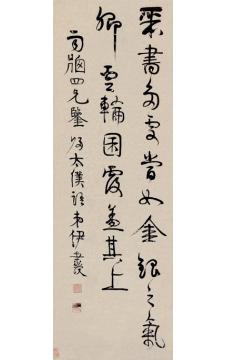 聚書多處當如金銀之氣
卿雲輪囷覆蓋其上
四兄鑒 歸太僕語 弟伊秉綬